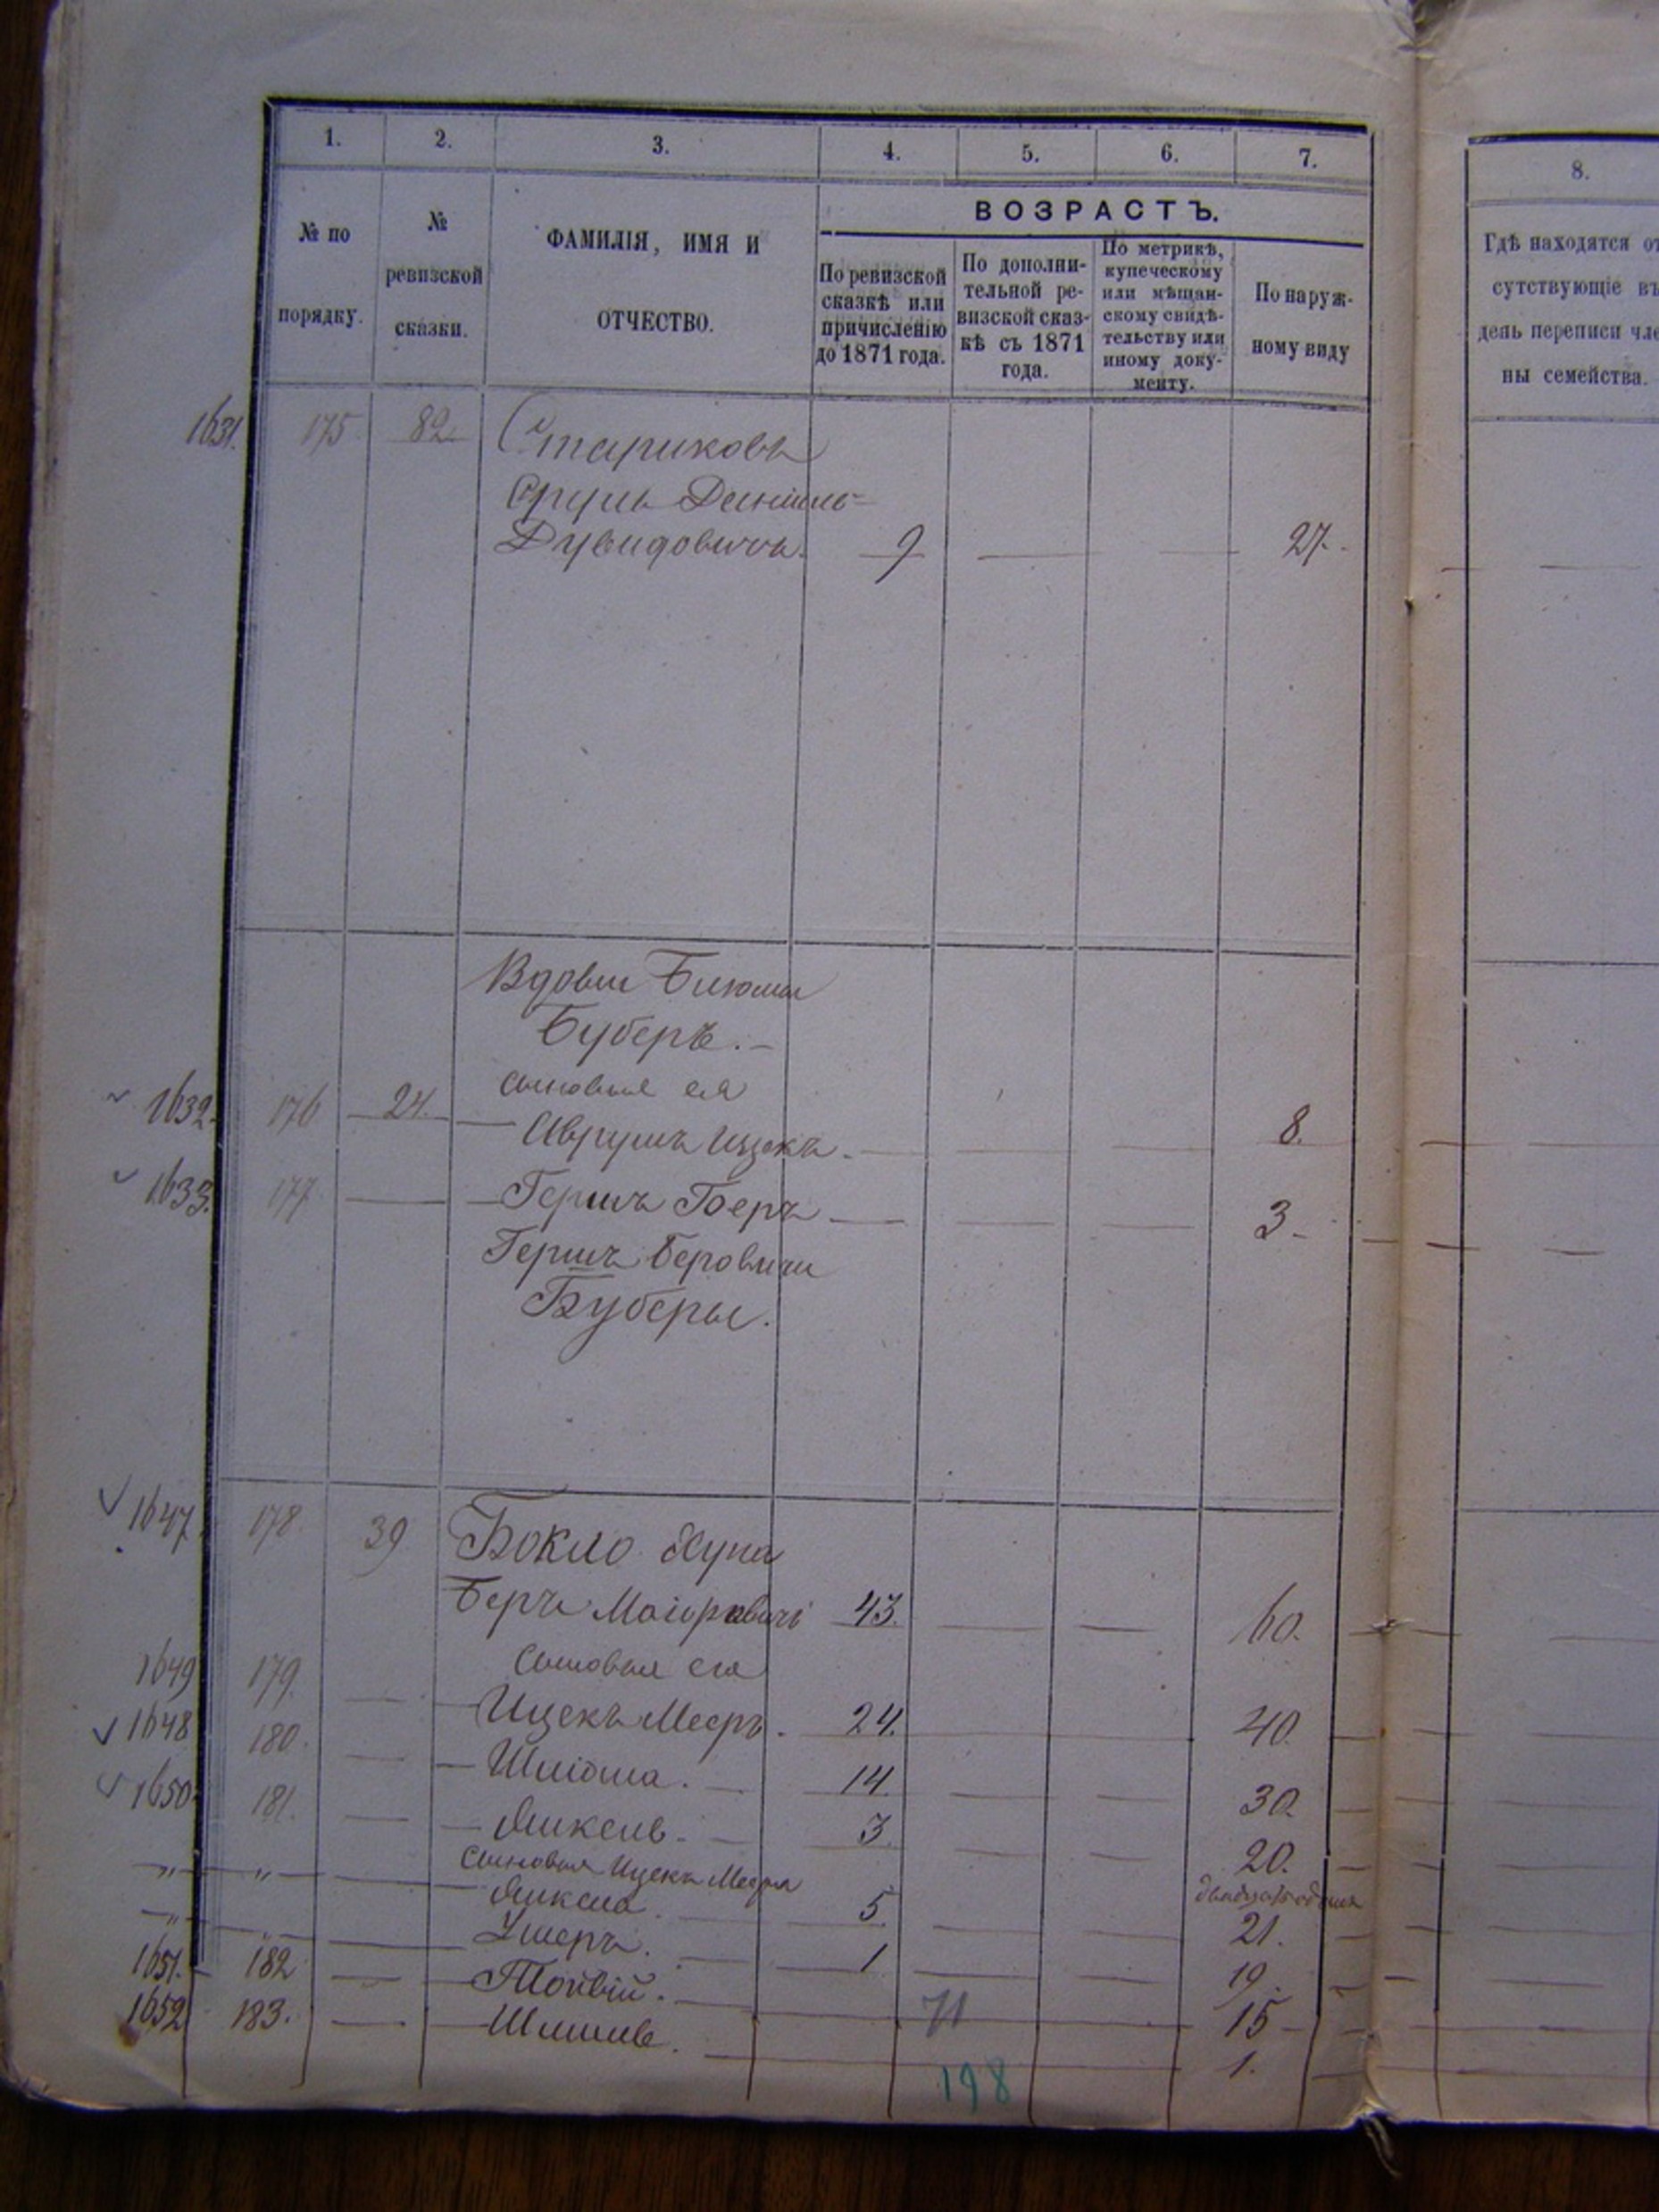 1. 2. 3. 4. 5. 6. 7.
№ по порядку.
№ ревизской сказки.
ФАМИЛІЯ, ИМЯ И ОТЧЕСТВО.
ВОЗРАСТЪ.
По ревизской сказкѣ или причисленію до 1871 года.
По дополнительной ревизской сказкѣ съ 1871 года.
По метрикѣ, купеческому или мѣщанскому свидѣтельству или иному документу.
По наружному виду
8.
Гдѣ находятся от
сутствующіе въ
день переписи чле
ны семейства.
1631. 175 82. Стариковъ
Сруль Даніиль-
Дувидовичъ. 9 27.
Вдова
Буберъ.
сыновья ея
1632. 176 24. Аврумъ Ицекъ. 8.
1633. 177 Гершъ Беръ 3
Гершъ Беровичи
Буберы.
1647 178. 39 Бокло
Беръ 43. 60.
сыновья его
1649 179. Ицекъ Мееръ. 24. 40.
1648 180. Шліома. 14. 30.
1650 181. 3. 20.
Сыновья Ицека Меера двадцать один
" " 5. 21.
" " Умеръ. 1 19.
1651. 182 Тойвій. 15
1652 183. 1.
71
198